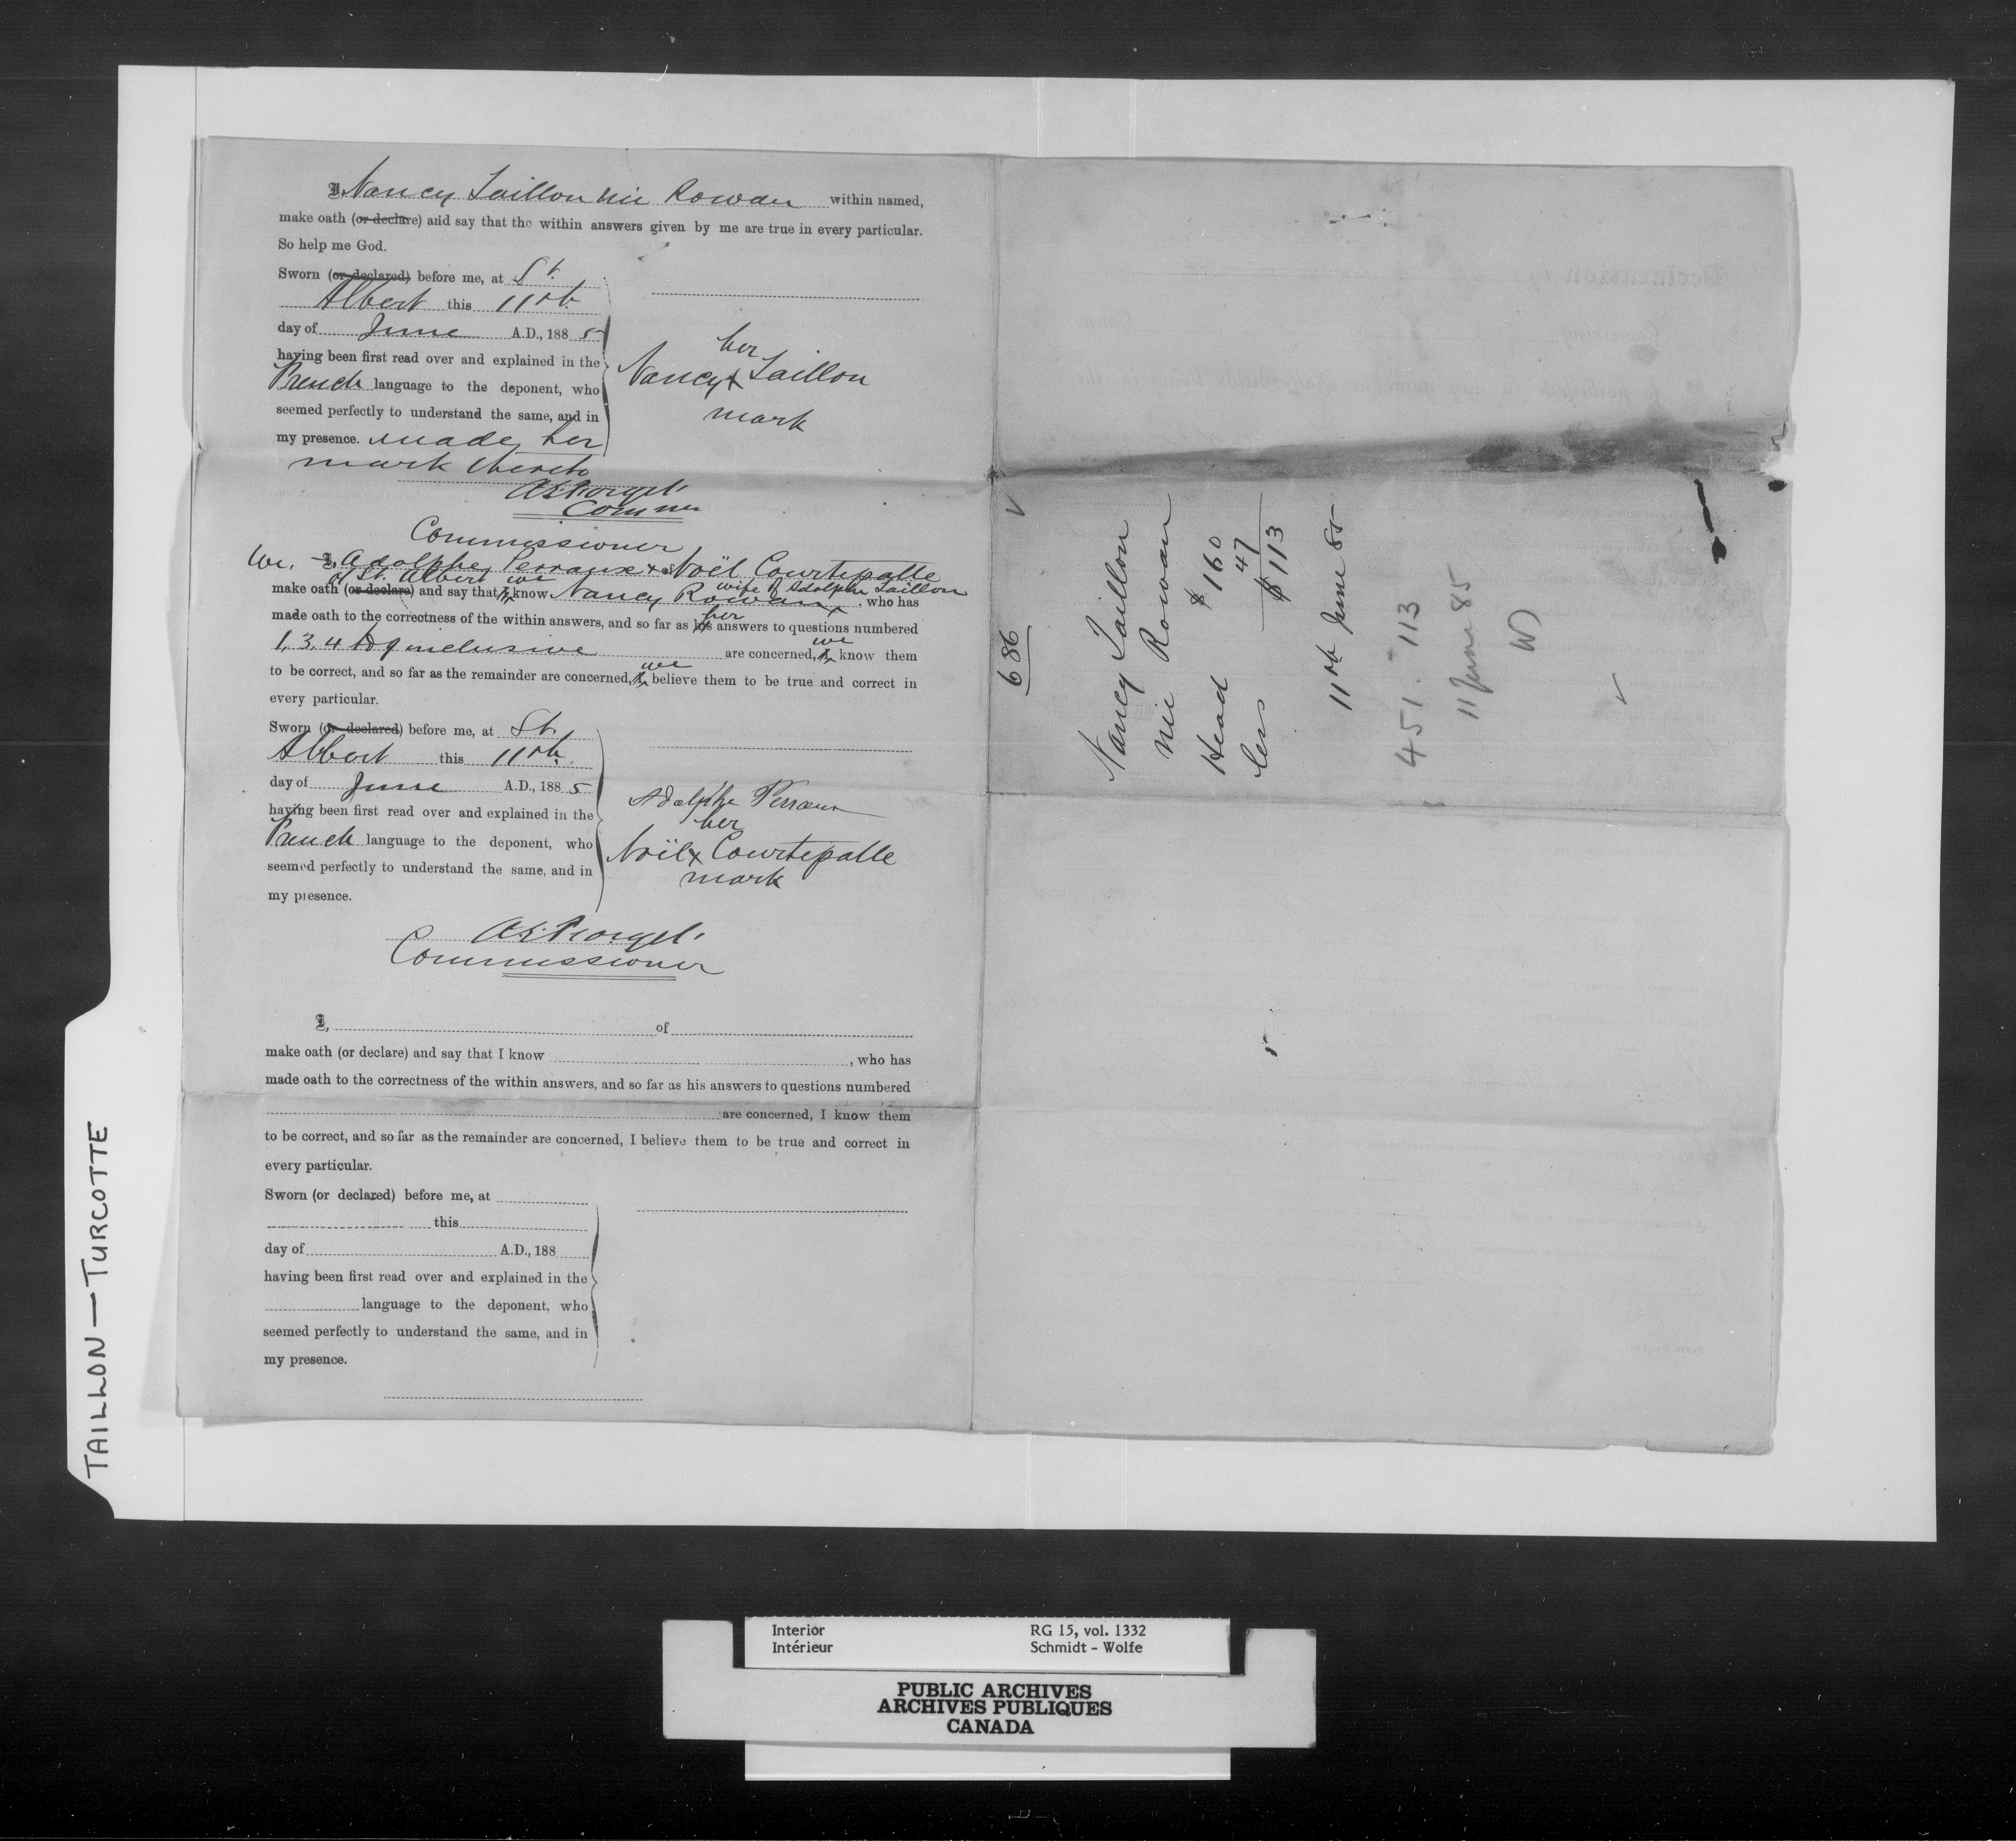 I, Nancy Taillon née Rowan within named,
make oath (or declare) and say that the within answers given by me are true in every particular.
So help me God.
Sworn (or declared) before me, at St.
Albert this 11th
day of June A.D., 188 5
having been first read over and explained in the
French language to the deponent, who
seemed perfectly to understand the same, and in
my presence. made her
mark thereto
her
Nancy x Taillon
mark
Comner
Commissioner
We, I, Adolphe Perraux & Noël Courtepatte
of St. Albert we wife of Adolphe Taillon
make oath (or declare) and say that I know Nancy Rowan, who has
her
made oath to the correctness of the within answers, and so far as his answers to questions numbered
we
1, 3, 4 to 9 inclusive are concerned, I know them
we
to be correct, and so far as the remainder are concerned, I believe them to be true and correct in
every particular.
Sworn (or declared) before me, at St.
Albert this 11th
day of June A.D., 188 5
having been first read over and explained in the
French language to the deponent, who
seemed perfectly to understand the same, and in
my presence.
Adolphe Perraux
her
Noël x Courtepatte
mark
Commissioner
I, of
make oath (or declare) and say that I know , who has
made oath to the correctness of the within answers, and so far as his answers to questions numbered
are concerned, I know them
to be correct, and so far as the remainder are concerned, I believe them to be true and correct in
every particular.
Sworn (or declared) before me, at
this
day of A.D., 188
having been first read over and explained in the
language to the deponent, who
seemed perfectly to understand the same, and in
my presence.
686
Nancy Taillon
née Rowan
Head $160
less 47
$113
11th June 85
451. 113
11 June 85
TAILLON — TURCOTTE
Interior RG 15, vol. 1332
Intérieur Schmidt - Wolfe
PUBLIC ARCHIVES
ARCHIVES PUBLIQUES
CANADA